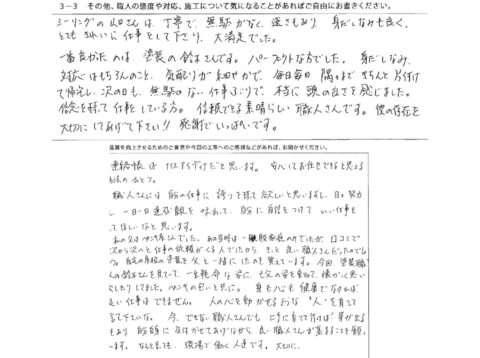 3-3 その他、職人の態度や対応、施工について気になることがあればご自由にお書きください。
シーリングの山口さんは、丁寧で、無駄がなく、速さもあり、身だしなみも良く、
とてもきれいに仕事をして下さり、大満足でした。
一番良かったのは、塗装の鈴木さんです。パーフェクトな方でした。身だしなみ、
対応はもちろんのこと、気配りが細やかで、毎日毎日隅々まできちんと片付け
て帰宅し、次の日も、無駄のない仕事ぶりで、本当に頭の良さを感じました。
信念を持って仕事をしている方。信頼できる素晴らしい職人さんです。彼の存在を
大切にしてあげて下さい!! 感謝でいっぱいです。
品質を向上させるためのご意見や今回の工事へのご感想などがあれば、お聞かせください。
連絡帳はナイスアイディアだと思います。安心してお任せできると思える
職人さんには自分の仕事に誇りを持って欲しいと思いますし、日々努力
し、一日一日達成感を味わって、自分に自信をつけていい仕事を
してほしいなと思います。
私の父はペンキ屋でした。あの当時は一般家庭のみでしたが、口コミで
次から次へと仕事の依頼がくる人でしたから、きっと良い職人さんだったのでしょう
自宅の屋根の塗装を父と一緒にしたのを覚えています。今回、塗装職
人の鈴木さんを見ていて、一生懸命な姿に、亡父の姿を重ねて、懐かしく思い
だしたりしてました。ペンキの匂いと共に。身も心も健康でなければ
良い仕事はできません。人の心を動かせるような"人"を育てて
言て下さいな。今、できない職人さんでも、丁寧に育てて行けば芽が出る
もあり、自信を付けさせてあげながら、良い職人さんが集まることを願い
ます。なんといっても、現場で働く人達です。大切に。